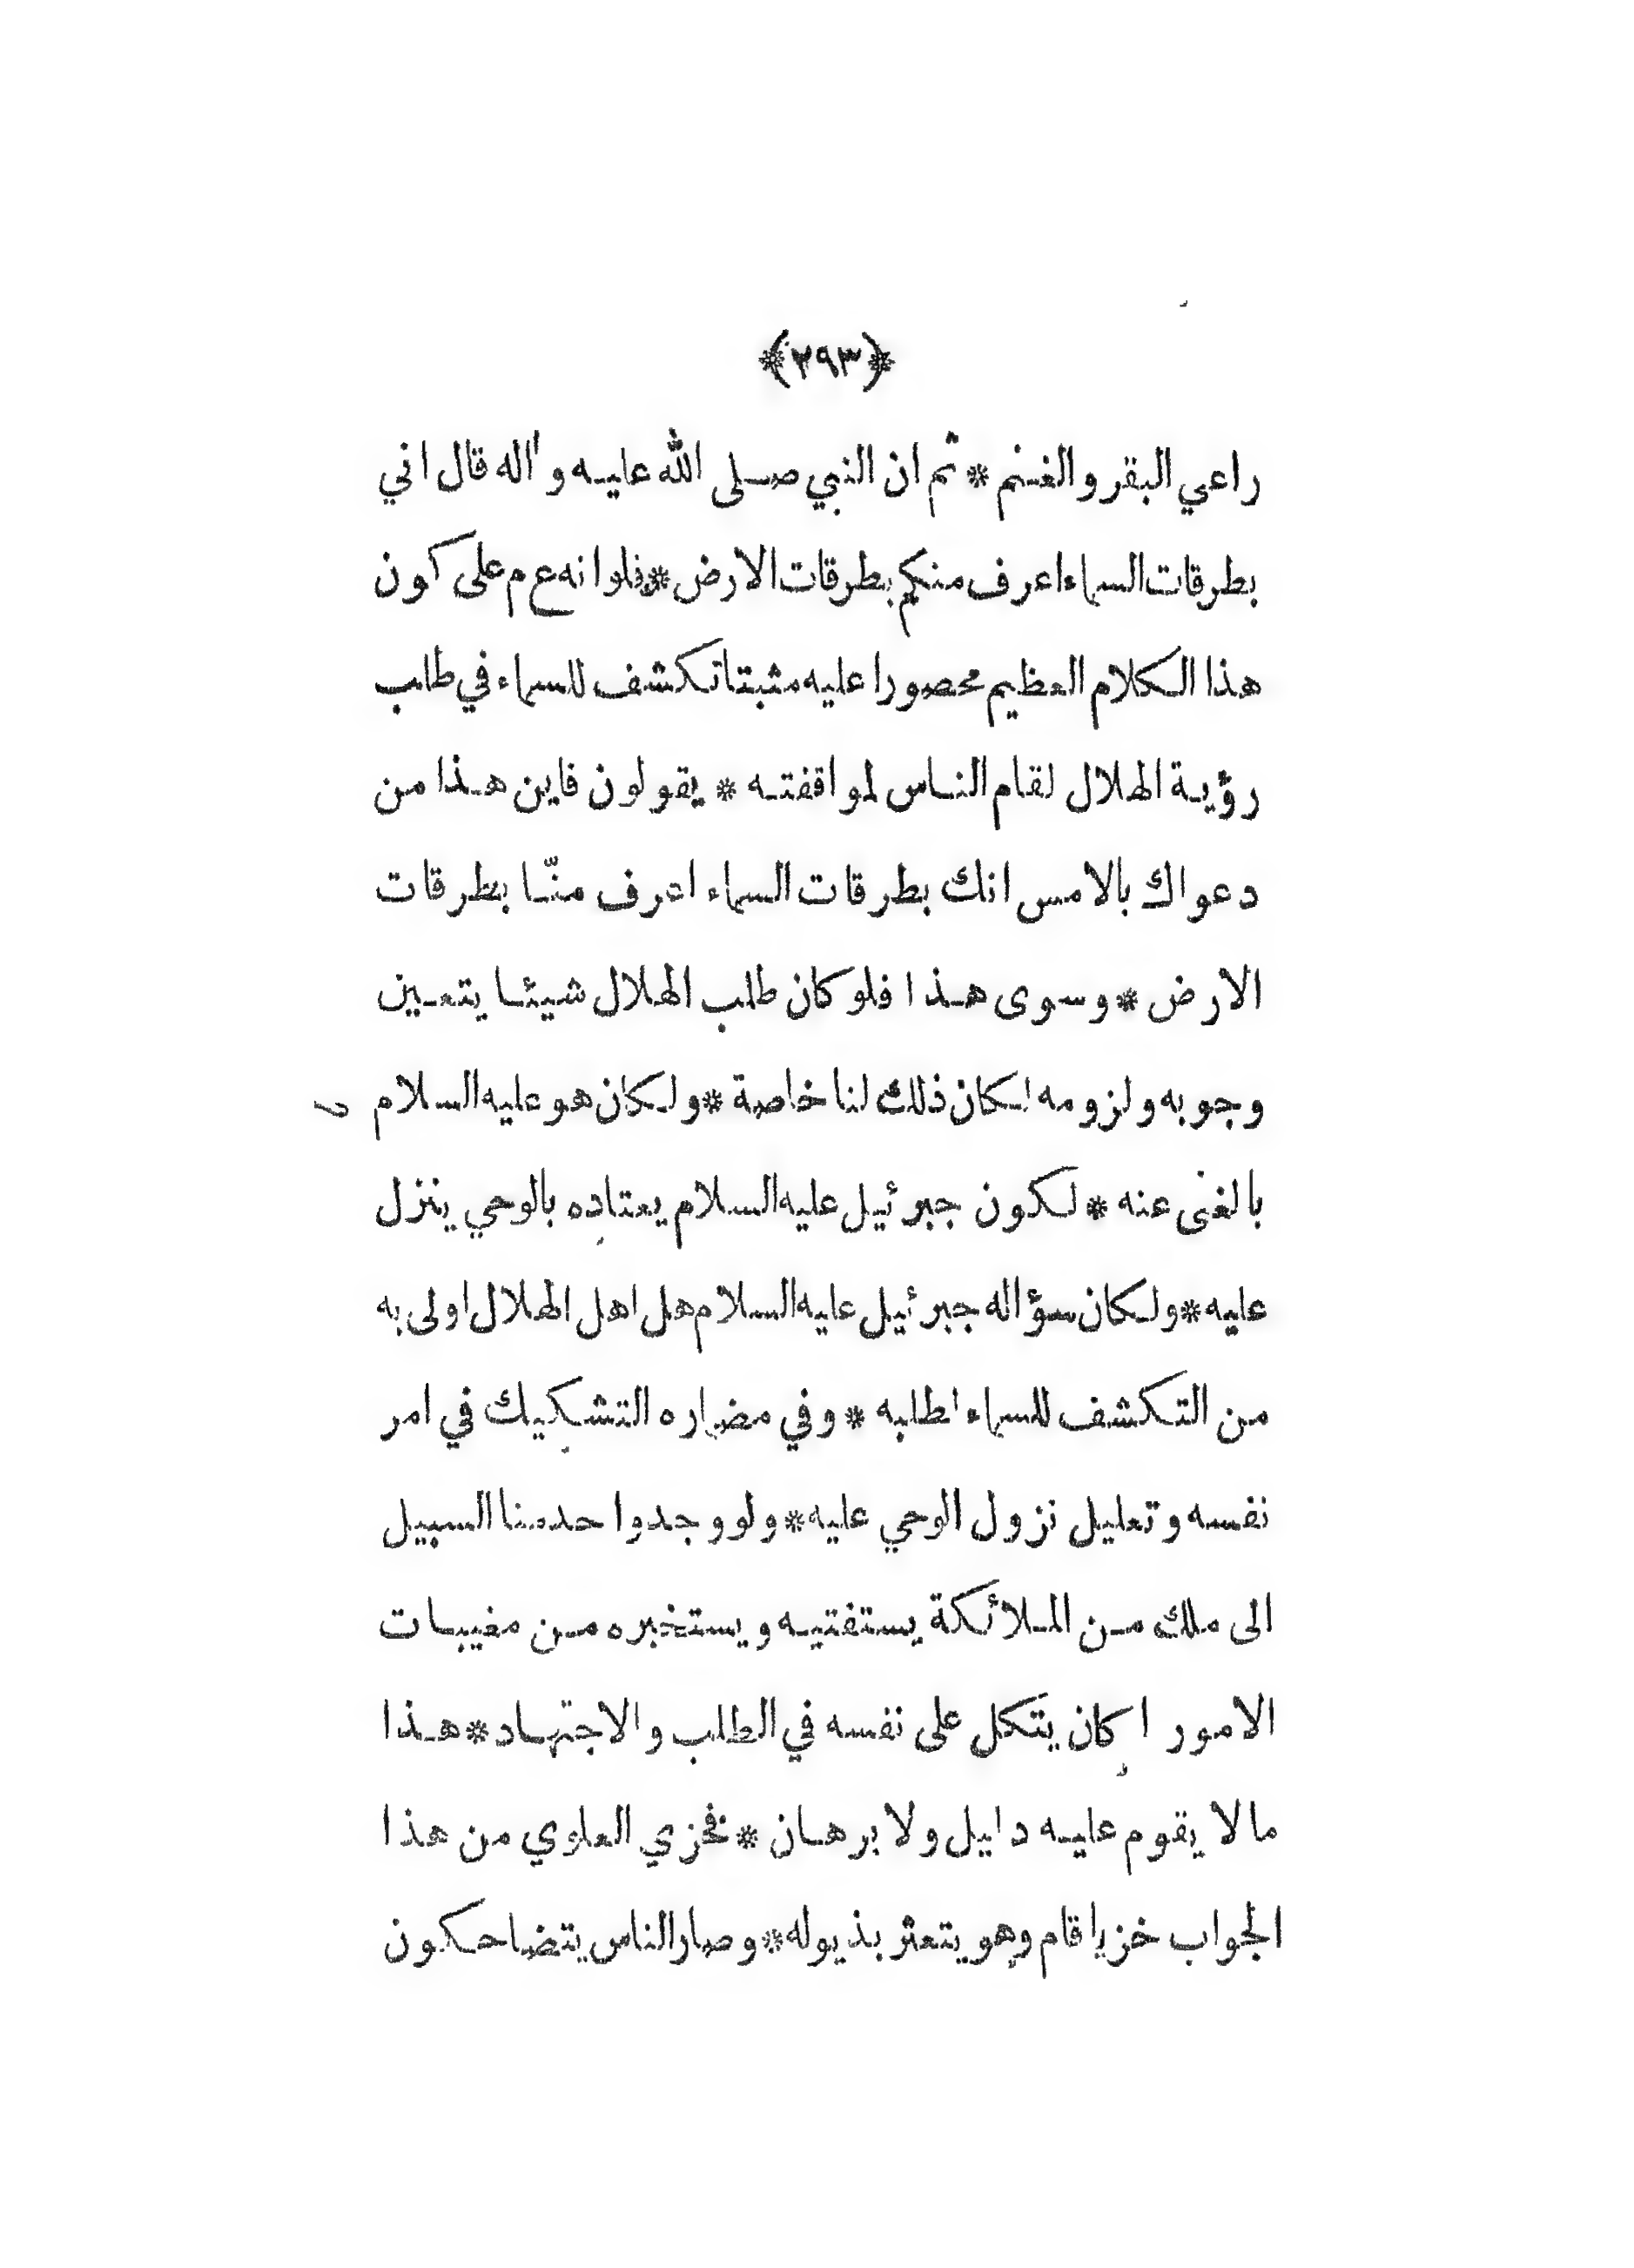 ﴿٢٩٣﴾
راعي البقر والغنم * ثم ان النبي صلى الله عليه وآله قال اني
بطرقات السماء اعرف منكم بطرقات الارض * فلو انه ع م على كون
هذا الكلام العظيم محصورا عليه مثبتا تكشف للسماء في طلب
رؤية الهلال لقام الناس لمواقفته * يقولون فاين هذا من
دعواك بالامس انك بطرقات السماء اعرف منّا بطرقات
الارض * وسوى هذا فلو كان طلب الهلال شيئا يتعين
وجوبه ولزومه لكان ذلك لنا خاصة * ولكان هو عليه السلام
بالغنى عنه * لكون جبرئيل عليه السلام يعتاده بالوحي ينزل
عليه * ولكان سؤاله جبرئيل عليه السلام هل اهل الهلال اولى به
من التكشف للسماء لطلبه * وفي مضاره التشكيك في امر
نفسه وتعليل نزول الوحي عليه * ولو وجدوا حدمنا السبيل
الى ملك من الملائكة يستفتيه ويستخبره من مغيبات
الامور ا كان يتكل على نفسه في الطلب والاجتهاد * هذا
مالا يقوم عليه دليل ولا برهان * فخزي العلوي من هذا
الجواب خزيا قام وهو يتعثر بذيوله * وصار الناس يتضاحكون